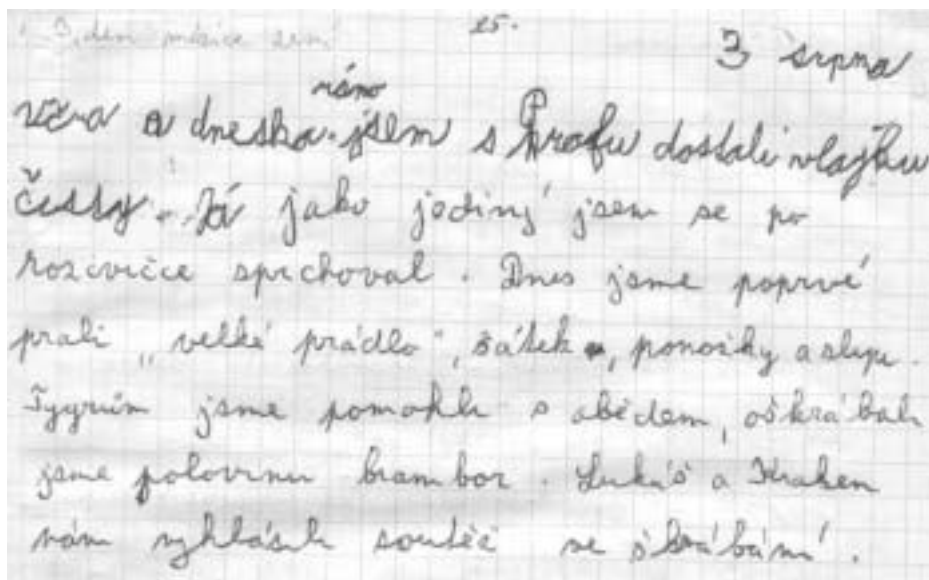 25.
3 srpna
ráno
včra a dneska jsem s Profu dostali vlajku
Já jako jediný jsem se po
rozcvičce sprchoval. Dnes jsme poprvé
prali „velké prádlo", šátek, ponožky a slipy.
Tygrům jsme pomohli s obědem, oškrábali
jsme polovinu brambor. Lukáš a Kraken
nám vyhlásili soutěž ve škrábání.